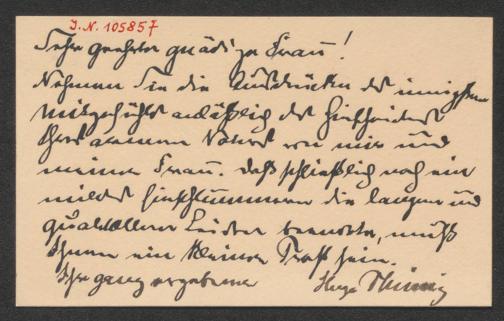 J.N. 105857
Sehr geehrte gnädige Frau!
Nehmen Sie die Ausdrücke des innigsten
Mitgefühls anläßlich des Hinscheidens
Ihres armen Vaters von mir und
meiner Frau. Daß schließlich noch ein
mildes Hinschlummern die langen und
qualvollen Leiden beendete, muß
Ihnen ein kleiner Trost sein.
Ihr ganz ergebener Hugo Thimig